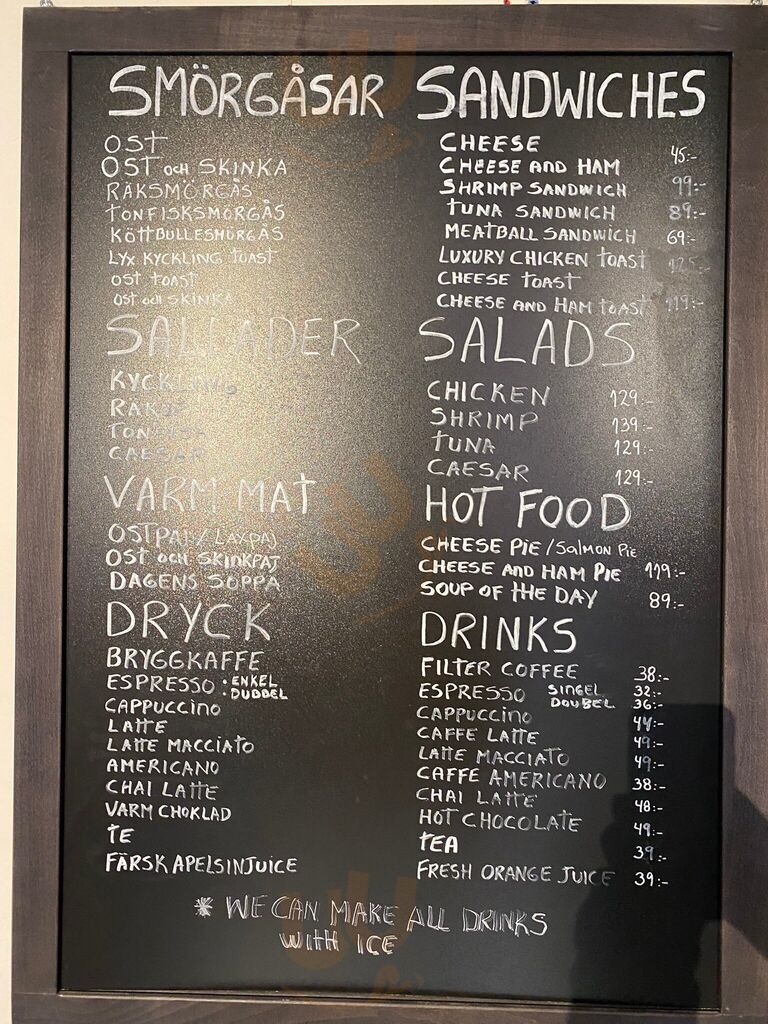 SMÖRGÅSAR
OST
OST och SKINKA
RÄKSMÖRGÅS
TONFISKSMÖRGÅS
KÖTTBULLESMÖRGÅS
LYX KYCKLING TOAST
OST TOAST
OST och SKINKA
SALLADER
KYCKLING
RÄKOR
TONFISK
CAESAR
VARM MAT
OSTPAJ / LAXPAJ
OST OCH SKINKPAJ
DAGENS SOPPA
DRYCK
BRYGGKAFFE
ESPRESSO : ENKEL
: DUBBEL
CAPPUCCINO
LATTE
LATTE MACCIATO
AMERICANO
CHAI LATTE
VARM CHOKLAD
TE
FÄRSK APELSINJUICE
SANDWICHES
CHEESE
CHEESE AND HAM 45:-
SHRIMP SANDWICH 99:-
TUNA SANDWICH 89:-
MEATBALL SANDWICH 69:-
LUXURY CHICKEN TOAST 125:-
CHEESE TOAST
CHEESE AND HAM TOAST 119:-
SALADS
CHICKEN 129:-
SHRIMP 139:-
TUNA 129:-
CAESAR 129:-
HOT FOOD
CHEESE PIE / Salmon Pie
CHEESE AND HAM PIE 119:-
SOUP OF THE DAY 89:-
DRINKS
FILTER COFFEE 38:-
ESPRESSO SINGEL 32:-
DOUBEL 36:-
CAPPUCCINO 44:-
CAFFE LATTE 49:-
LATTE MACCIATO 49:-
CAFFE AMERICANO 38:-
CHAI LATTE 48:-
HOT CHOCOLATE 49:-
TEA 39:-
FRESH ORANGE JUICE 39:-
* WE CAN MAKE ALL DRINKS
WITH ICE